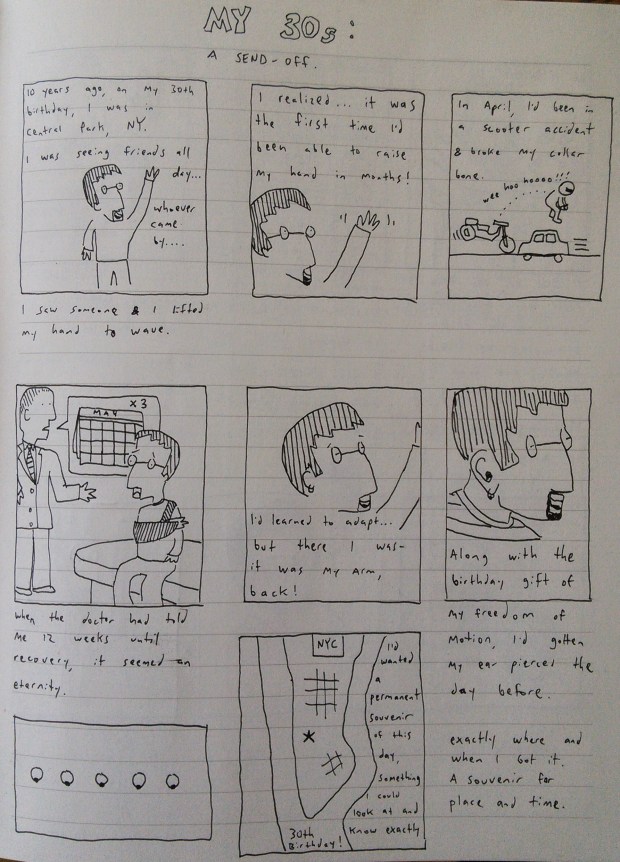 MY 30s:
A SEND-OFF.
10 years ago, on my 30th
birthday, I was in
Central Park, NY.
I was seeing friends all
day...
whoever
came
by....
I saw someone & I lifted
my hand to wave.
I realized... it was
the first time I'd
been able to raise
my hand in months!
In April, I'd been in
a scooter accident
& broke my collar
bone.
wee hoo hoooo!!!
x3
MAY
when the doctor had told
me 12 weeks until
recovery, it seemed an
eternity.
I'd learned to adapt...
but there I was-
it was my arm,
back!
Along with the
birthday gift of
my freedom of
motion, I'd gotten
my ear pierced the
day before.
NYC
I'd
wanted
a
permanent
souvenir
of this
day,
something
I could
look at and
know exactly
30th
Birthday!
exactly where and
when I got it.
A souvenir for
place and time.